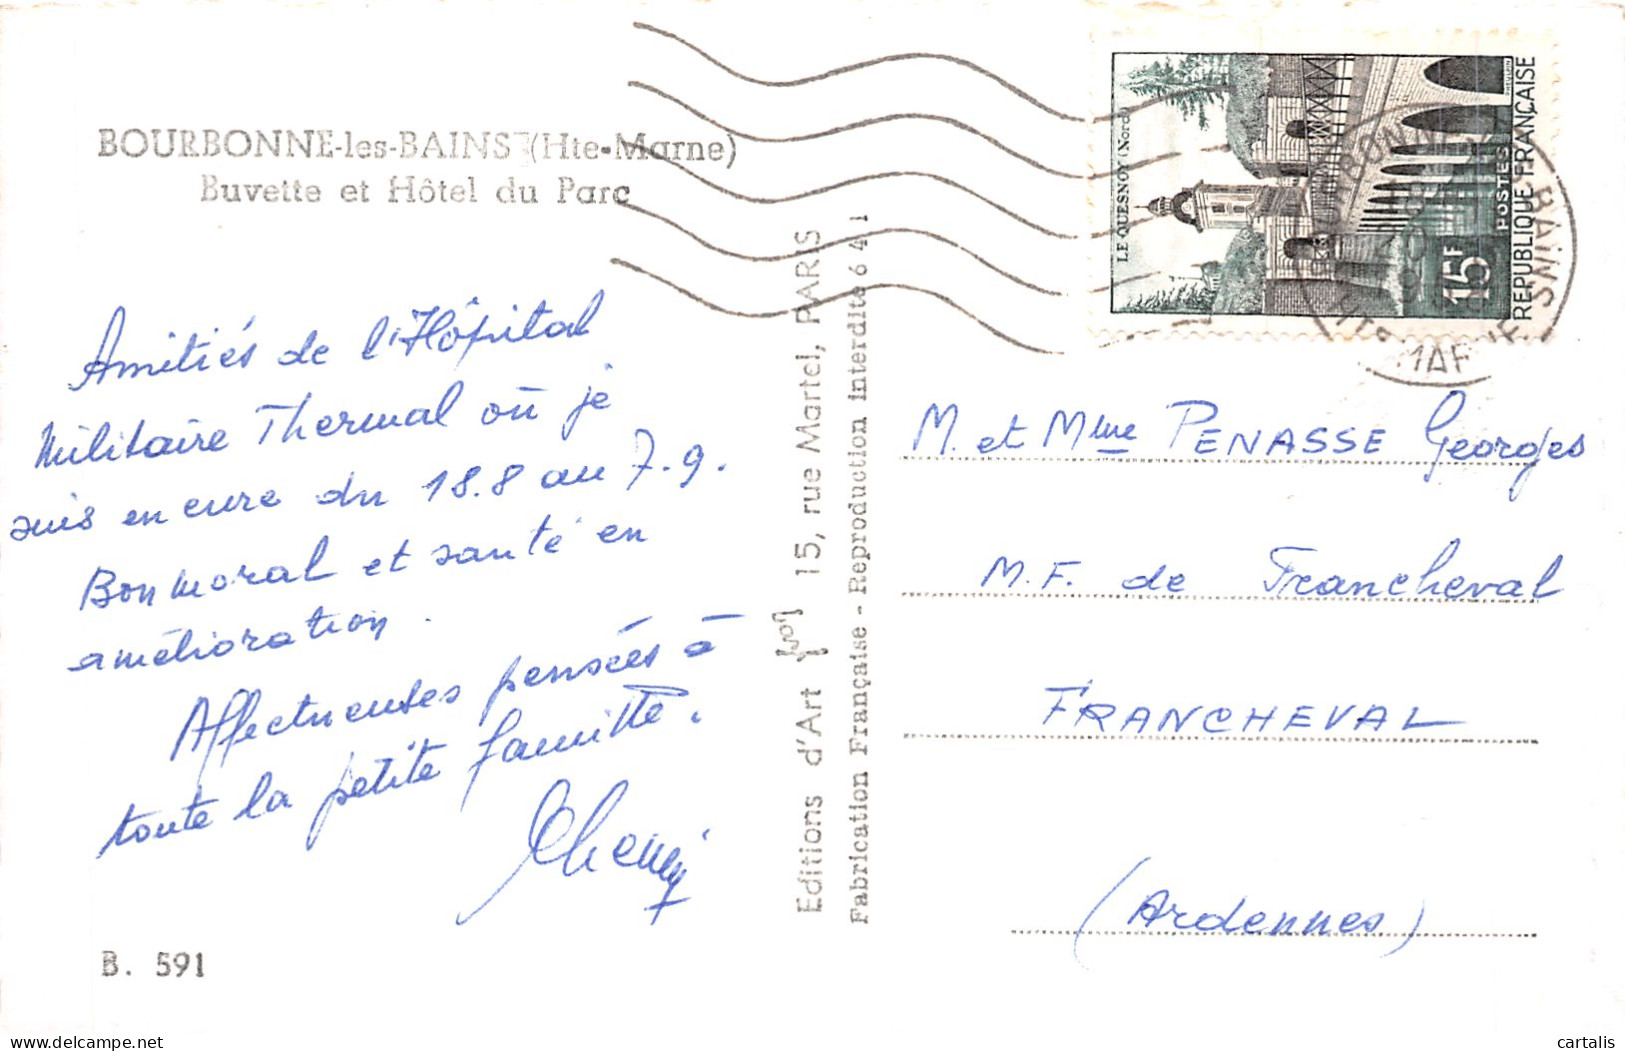 BOURBONNE-les-BAINS (Hte-Marne)
Buvette et Hôtel du Parc
Amitiés de l'Hôpital
Militaire Thermal où je
suis en cure du 18.8 au 7.9.
Bon moral et santé en
amélioration.
Affectueuses pensées à
toute la petite famille.
B. 591
Editions d'Art 15, rue Martel, PARIS
Fabrication Française - Reproduction interdite 641
LE QUESNOY (Nord)
15F
POSTES
REPUBLIQUE FRANÇAISE
M. et Mme PENASSE Georges
M.F. de Francheval
FRANCHEVAL
(Ardennes)
delcampe.net
cartalis